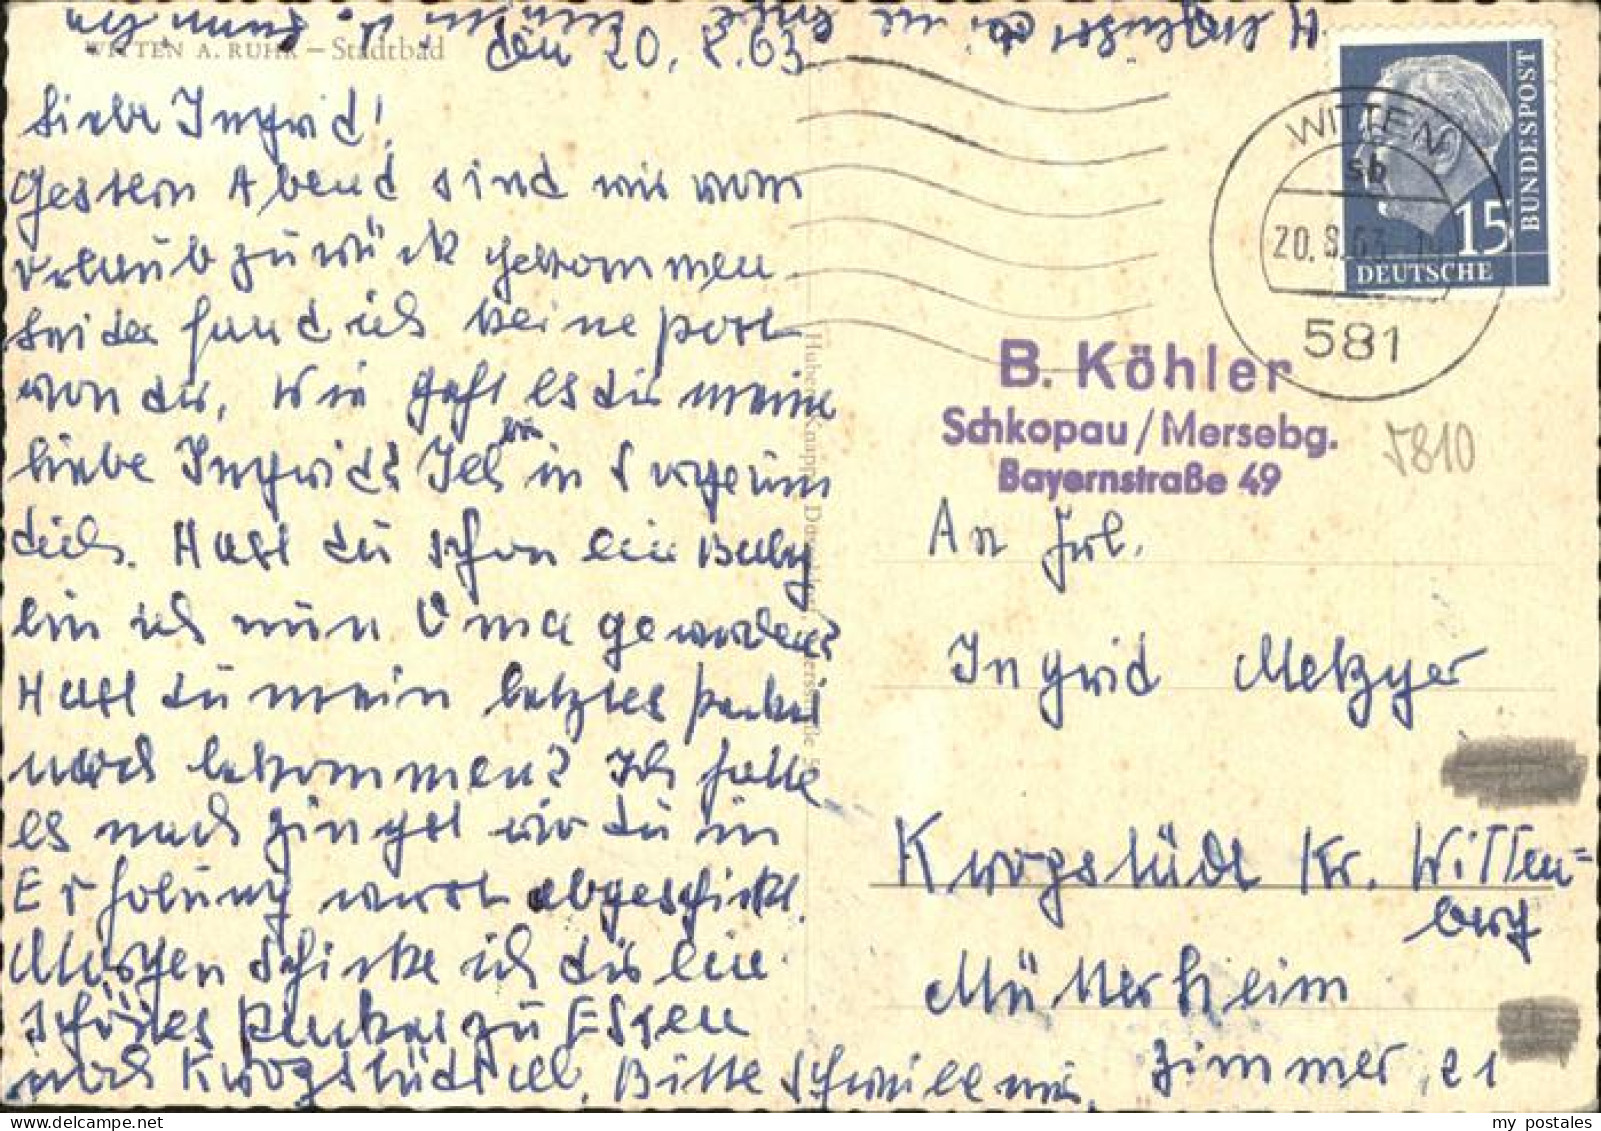 WITTEN A. RUHR – Stadtbad
den 20. 8. 63
Liebe Ingrid!
Gestern Abend sind wir vom
Urlaub zurück gekommen
leider fand ich keine post
von dir, Wie geht es dir meine
liebe Ingrid? Ich bin in Sorge um
dich. Hast du schon ein Baby
bin ich nun Oma geworden?
Hast du mein letztes packet
noch bekommen? Ich hatte
es nach Zingst wo du in
Erholung warst abgeschickt.
Morgen Schicke ich dir ein
schönes Packet zu Essen
nach Kropstädt ab. Bitte schreibe mir
DEUTSCHE
BUNDESPOST
15
WITTEN
sb
20. 8. 63
581
B. Köhler
Schkopau / Mersebg.
Bayernstraße 49
5810
An Frl.
Ingrid Metzger
Kropstädt Kr. Witten=
berg
Mütterheim
Zimmer, 21
my postales